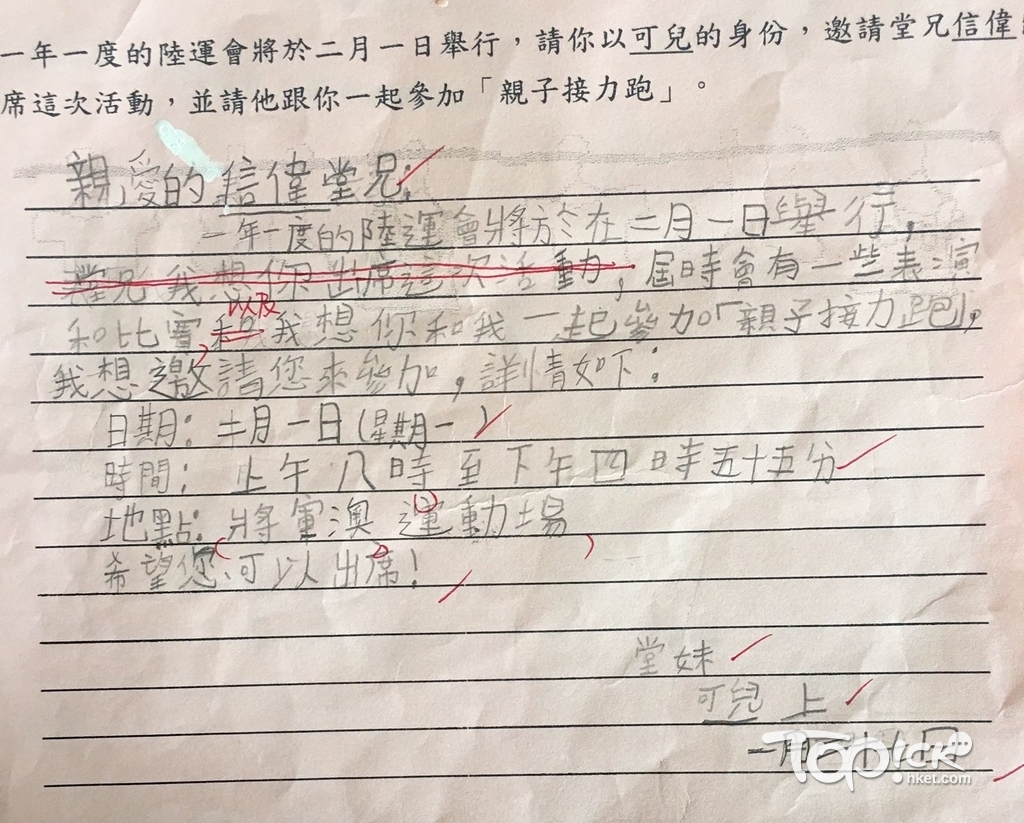 一年一度的陸運會將於二月一日舉行，請你以可兒的身份，邀請堂兄信偉
席這次活動，並請他跟你一起參加「親子接力跑」。
親愛的信偉堂兄：
一年一度的陸運會將於在二月一日舉行，
堂兄我想你出席這次活動，屆時會有一些表演
以及
和比賽和我想你和我一起參加「親子接力跑」，
我想邀請您來參加，詳情如下：
日期：二月一日(星期一)
時間：上午八時至下午四時五十五分
地點：將軍澳運動場
希望您可以出席！
堂妹
可兒 上
一月二十八日
TOPick
hket.com